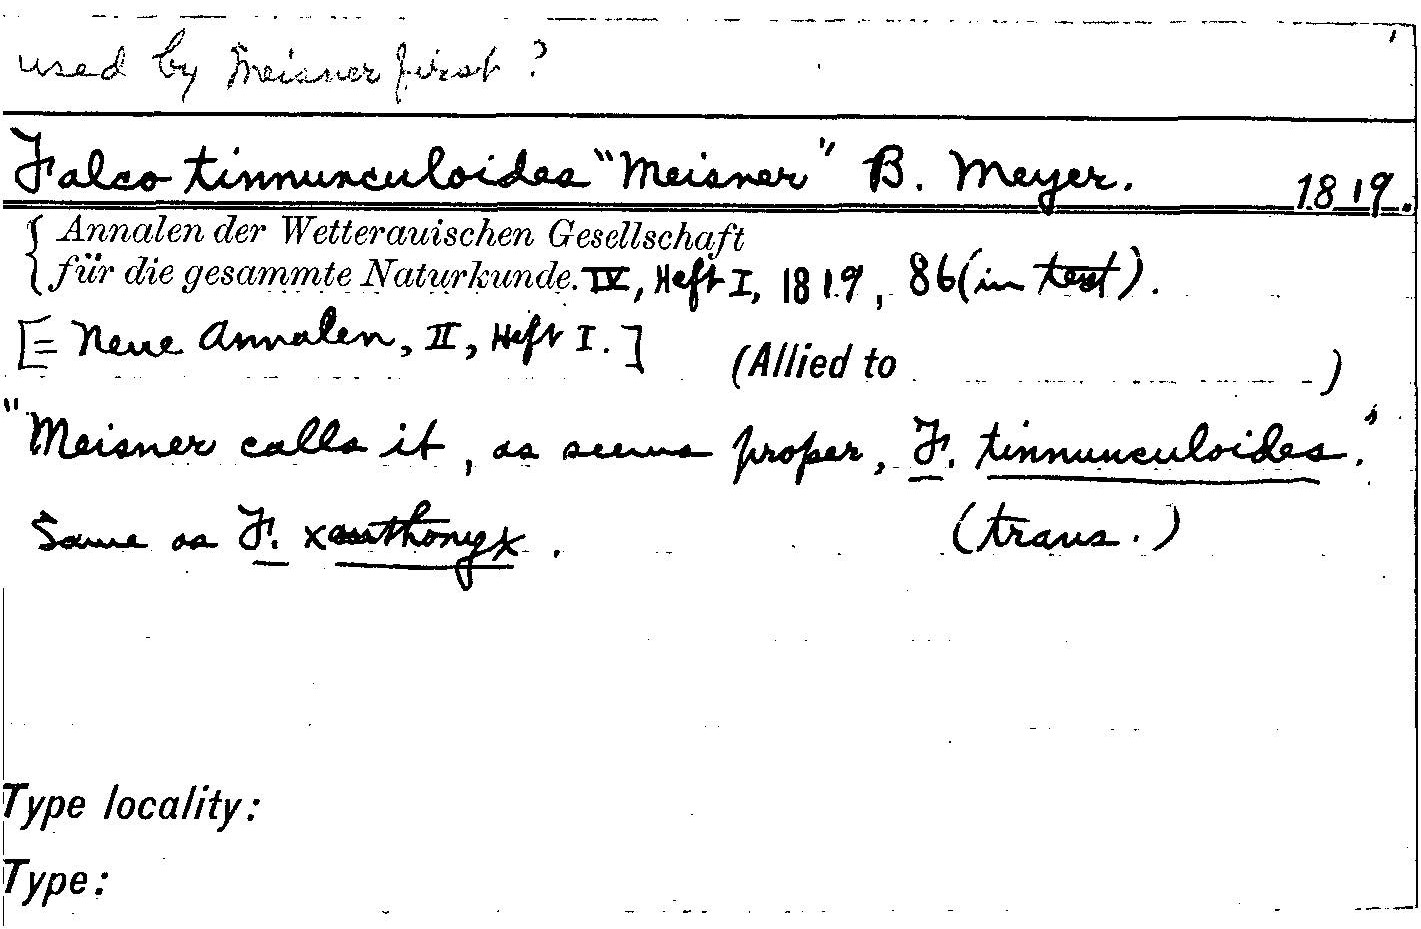 used by Meisner first?
Falco tinnunculoides "Meisner" B. Meyer. 1819.
Annalen der Wetterauischen Gesellschaft
für die gesammte Naturkunde. IV, Heft I, 1819, 86 (in text).
[= Neue Annalen, II, Heft I.]
(Allied to )
"Meisner calls it, as seems proper, F. tinnunculoides."
Same as F. xanthonyx. (trans.)
Type locality:
Type: